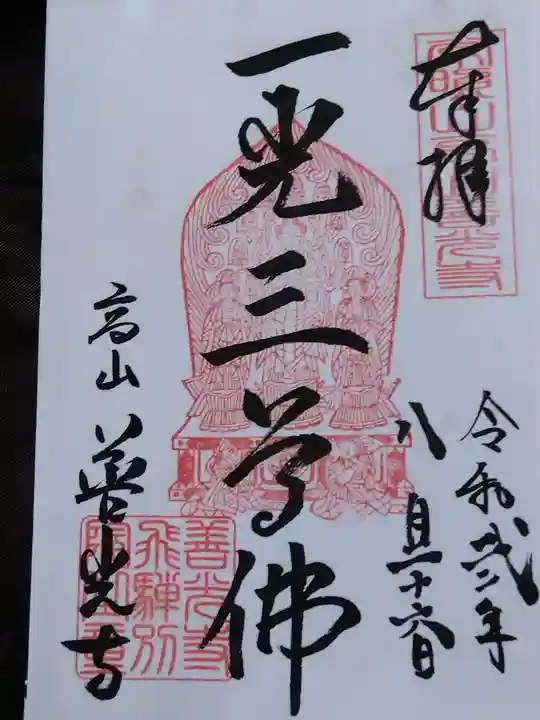 奉拝
令和弐年
八月二十六日
一光三尊佛
高山
善光寺
善光寺
飛騨別